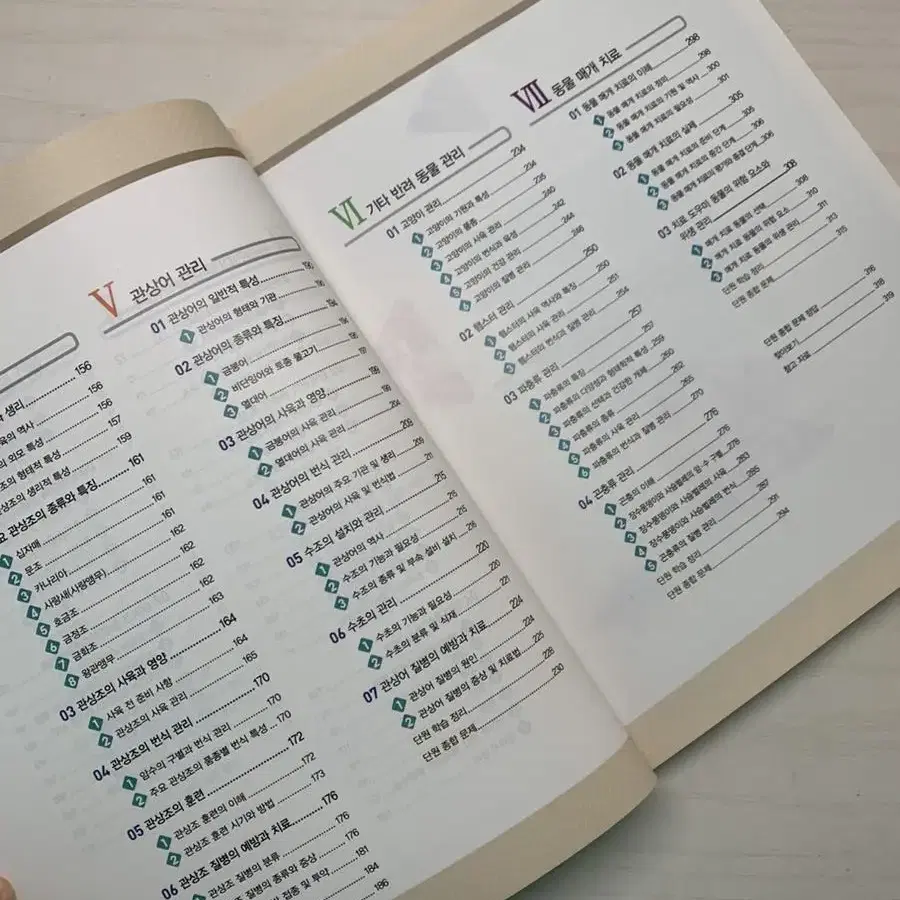 생리 156
육의 역사 156
의 외모 특성 156
조의 형태적 특성 157
관상조의 생리적 특성 159
요 관상조의 종류와 특징 161
1 십자매 161
2 문조 161
3 카나리아 162
4 사랑새(사랑앵무) 162
5 호금조 162
6 금정조 162
7 금화조 163
8 왕관앵무 164
03 관상조의 사육과 영양 164
1 사육 전 준비 사항 164
2 관상조의 사육 관리 165
04 관상조의 번식 관리 170
1 암수의 구별과 번식 관리 170
2 주요 관상조의 품종별 번식 특성 170
05 관상조의 훈련 172
1 관상조 훈련의 이해 172
2 관상조 훈련 시기와 방법 173
06 관상조 질병의 예방과 치료 176
1 관상조 질병의 분류 176
관상조 질병의 종류와 증상 176
접종 및 투약 181
184
186
V 관상어 관리
01 관상어의 일반적 특성
1 관상어의 형태와 기관
02 관상어의 종류와 특징
1 금붕어
2 비단잉어와 토종 물고기
3 열대어
03 관상어의 사육과 영양
1 금붕어의 사육 관리
2 열대어의 사육 관리 204
04 관상어의 번식 관리 209
1 관상어의 주요 기관 및 생리 209
2 관상어의 사육 및 번식법
05 수조의 설치와 관리 215
1 관상어의 역사 215
2 수조의 기능과 필요성 215
3 수조의 종류 및 부속 설비 설치
06 수초의 관리 220
1 수초의 기능과 필요성 220
2 수초의 분류 및 식재 221
07 관상어 질병의 예방과 치료 224
1 관상어 질병의 원인 224
2 관상어 질병의 증상 및 치료법 225
단원 학습 정리 228
단원 종합 문제 230
VI 기타 반려 동물 관리
01 고양이 관리 234
1 고양이의 기원과 특성 234
2 고양이의 품종 235
3 고양이의 사육 관리 240
4 고양이의 번식과 육성 242
5 고양이의 건강 관리 244
6 고양이의 질병 관리 246
02 햄스터 관리 250
1 햄스터의 사육 역사와 특징 250
2 햄스터의 사육 관리 251
3 햄스터의 번식과 질병 관리 254
03 파충류 관리 257
1 파충류의 특징 257
2 파충류의 다양성과 형태학적 특성 259
3 파충류의 선택과 건강한 개체 260
4 파충류의 종류 262
5 파충류의 사육 관리 265
6 파충류의 번식과 질병 관리 270
04 곤충류 관리 276
1 곤충의 이해 276
2 장수풍뎅이와 사슴벌레의 암·수 구별 278
3 장수풍뎅이와 사슴벌레의 사육 283
4 장수풍뎅이와 사슴벌레의 번식 285
5 곤충류의 질병 관리 287
단원 학습 정리 291
단원 종합 문제 294
VII 동물 매개 치료
01 동물 매개 치료의 이해 298
1 동물 매개 치료의 정의 298
2 동물 매개 치료의 기원 및 역사 300
3 동물 매개 치료의 필요성 301
02 동물 매개 치료의 실제 305
1 동물 매개 치료의 준비 단계 305
2 동물 매개 치료의 중간 단계 306
3 동물 매개 치료의 평가와 종결 단계 306
03 치료 도우미 동물의 위험 요소와
위생 관리 308
1 매개 치료 동물의 선택 308
2 매개 치료 동물의 위험 요소 310
3 매개 치료 동물의 위생 관리 311
단원 학습 정리 313
단원 종합 문제 315
단원 종합 문제 정답 316
찾아보기 318
참고 자료 319